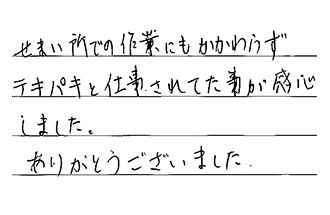 せまい所での作業にもかかわらず
テキパキと仕事されてた事が感心
しました。
ありがとうございました.